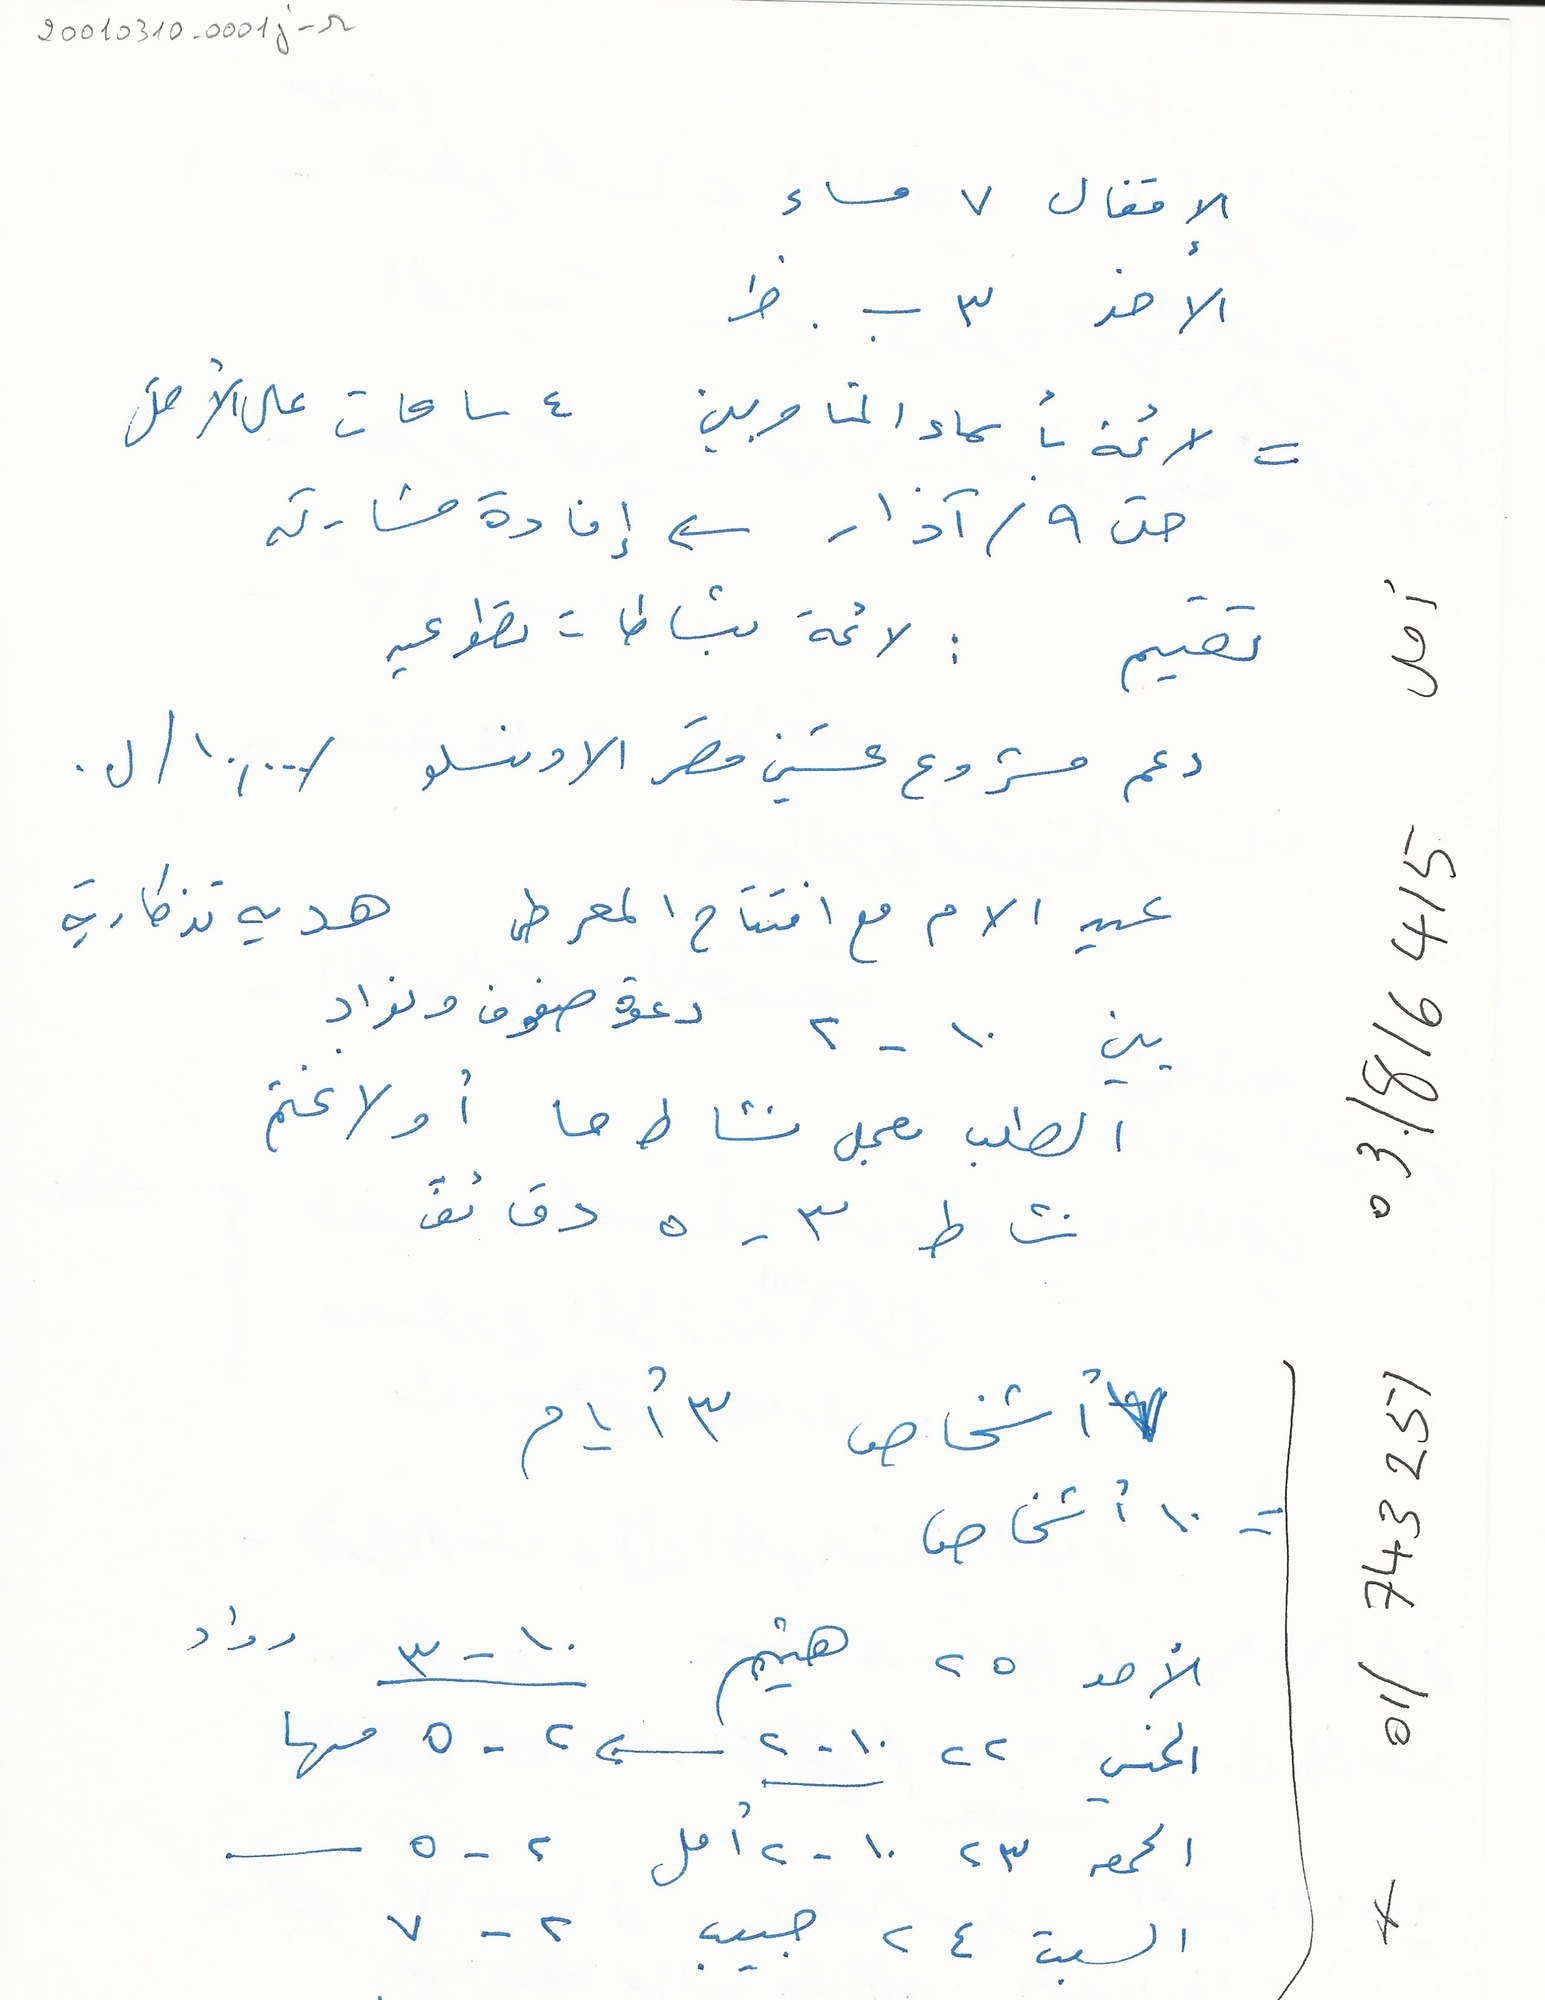 20010310-0001j-r
الاقفال ٧ مساء
الأخذ ٣ ب. ظ
= لائحة بأسماء المناوبين ٤ ساعات على الأقل
حتى ٩ / آذار ← إفادة مشاركة
تقييم : لائحة بنشاطات تطوعيه
دعم مشروع تحسين مقر الاونسكو /١٠,٠٠٠/ ل.
عيد الام مع افتتاح المعرض هديه تذكارية
بين ١٠ - ٢ دعوة صفوف ونواد
الطلب نشاط ها أو لا
نشاط ٣ - ٥ دقائق
٧ أشخاص ٣ أيام
= ١٠ أشخاص
الأحد ٢٥ هيثم ١٠ - ٣ رواد
الخميس ٢٢ ١٠ - ٢ ← ٢ - ٥ مها
الجمعه ٢٣ ١٠ - ٢ أمل ٢ - ٥ —
السبة ٢٤ حبيب ٢ - ٧
أمل 03/816415
01/743251